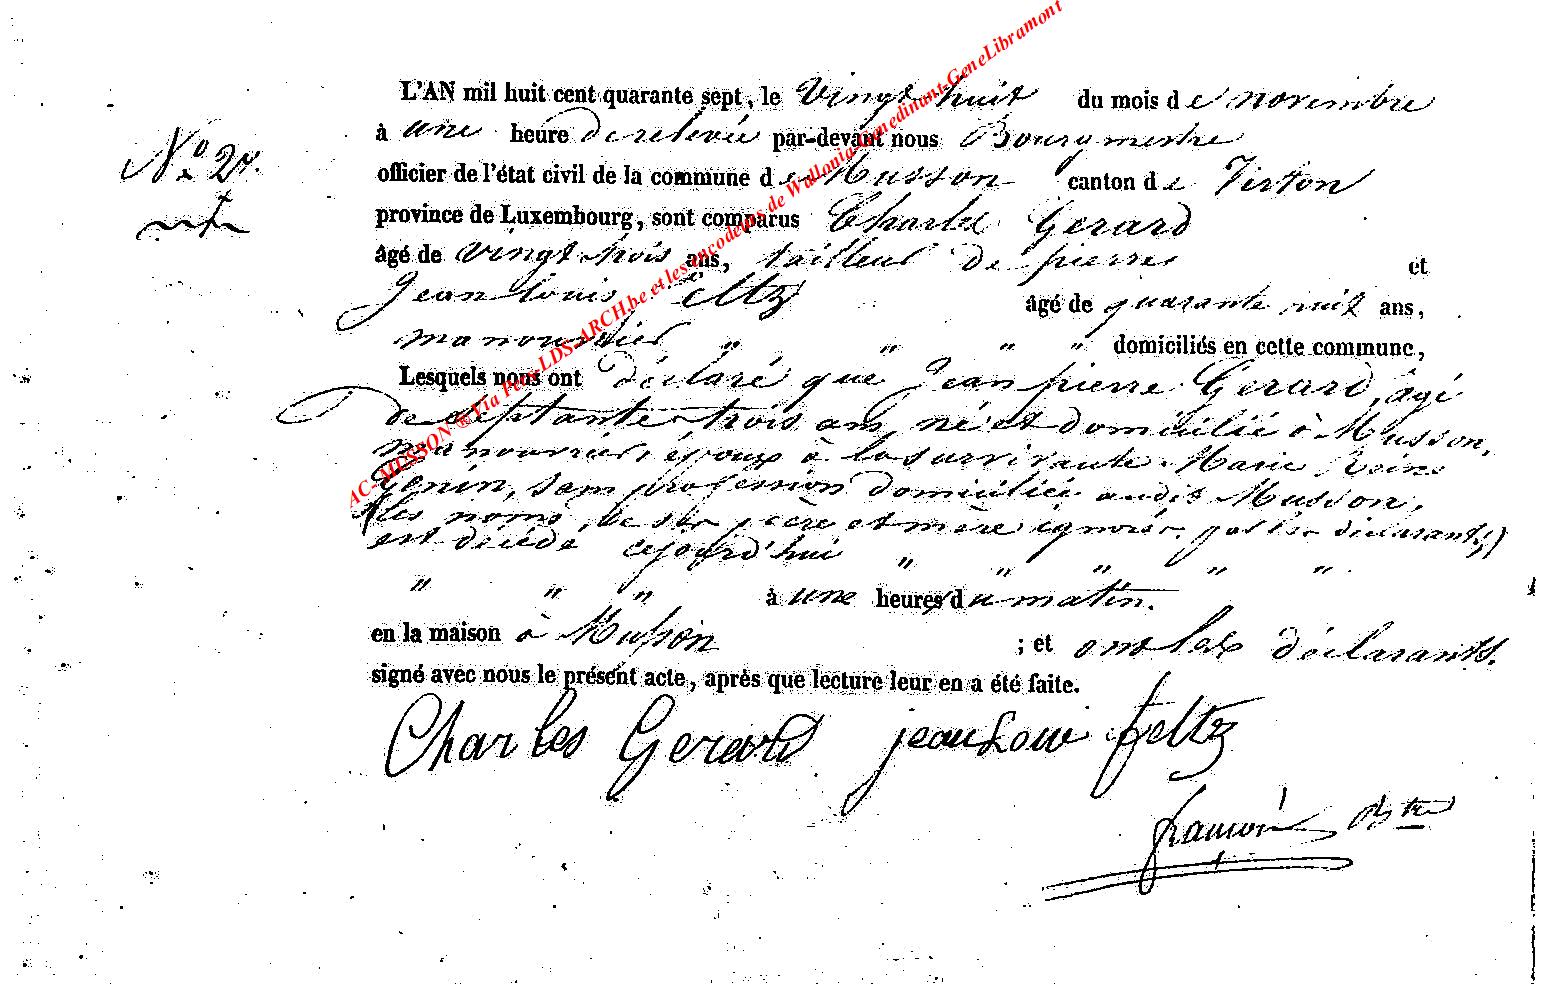 L'AN mil huit cent quarante sept, le vingt huit du mois de novembre
N° 24.
à une heure de relevée par-devant nous Bourgmestre
officier de l'état civil de la commune de Musson canton de Virton
province de Luxembourg, sont comparus Charles Gerard
âgé de vingt trois ans, tailleur de pierres et
Jean Louis Feltz âgé de quarante huit ans,
manouvrier " " " " domiciliés en cette commune,
Lesquels nous ont déclaré que Jean pierre Gerard, agé
de septante trois ans né et domicilié à Musson,
manouvrier, époux à la survivante Marie Reine
Genin, sans profession domiciliée audit Musson,
(les noms de ses père et mère ignorés par les déclarants;)
est décédé cejourd'hui " " " " "
" " " à une heures du matin.
en la maison à Musson ; et ont les déclarants.
signé avec nous le présent acte, après que lecture leur en a été faite.
Charles Gerard jean Loui feltz
françois Btre
AC-MUSSON ® Via Perx-LDS-ARCH.be et les encodeurs de Wallonia-Genedinant-GeneLibramont